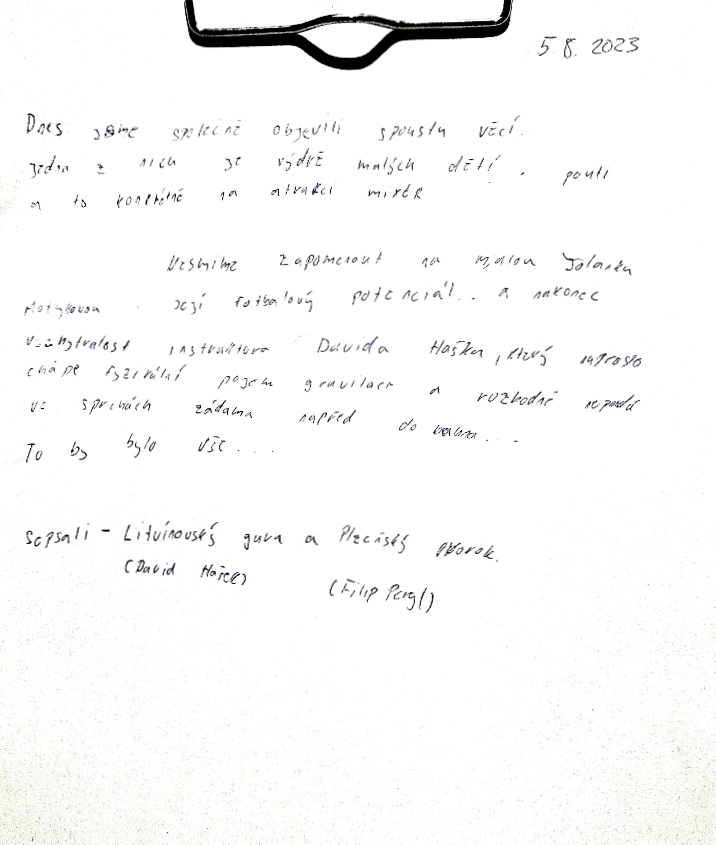 5.8. 2023
Dnes jsme společně objevili spoustu věcí.
jedna z nich je výdrž malých dětí . pouti
a to konkrétně na atrakci mixér
Nesmíme zapomenout na malou Jolanku
Motykovou její fotbalový potenciál... a nakonec
vychytralost instruktora Davida Haška, který naprosto
chápe fyzikální pojem gravitace a rozhodně nepadá
ve sprchách zádama napřed do
To by bylo vše....
Sepsali - Litvínovský guru a Plzeňský
(David Hašek)
(Filip Pergl)